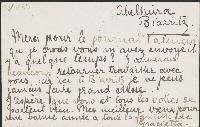 Biarritz
Merci pour le journal
que je crois vous m'avez envoyé il
y a quelque temps? J'aimerais
beaucoup retourner travailler avec
vous, car ici à Biarritz je ne peux
jamais faire grand chose.
J'espère que vous et tous les vôtres se
portent bien. Mes meilleurs vœux pour
une bonne année à tous